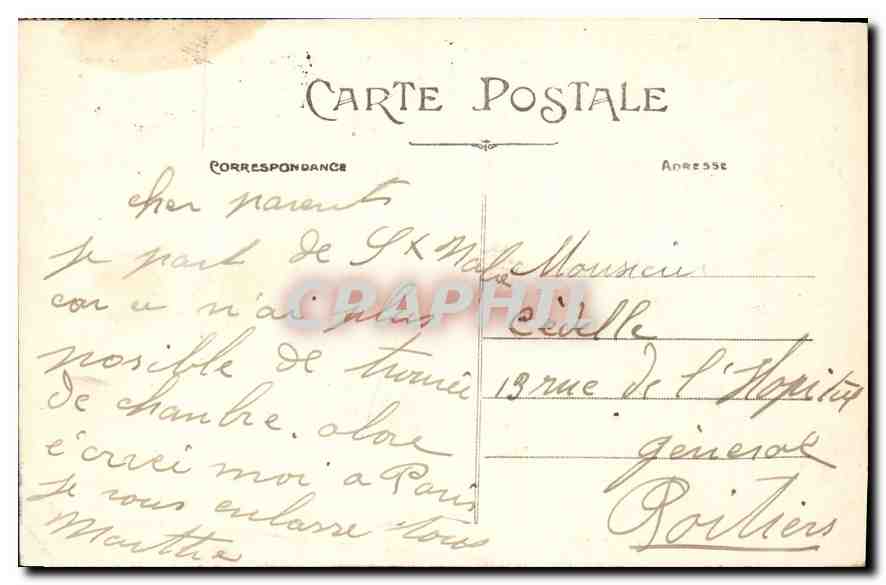 CARTE POSTALE
CORRESPONDANCE
ADRESSE
cher parents
je part de St Malo
car ce n'ai plus
posible de trouvée
de chanbre. alore
écrivei moi a Paris
je vous enbasse tous
Marthe
Monsieur
Cédelle
13 rue de l'Hopital
géneral
Poitiers
CPAPHIL